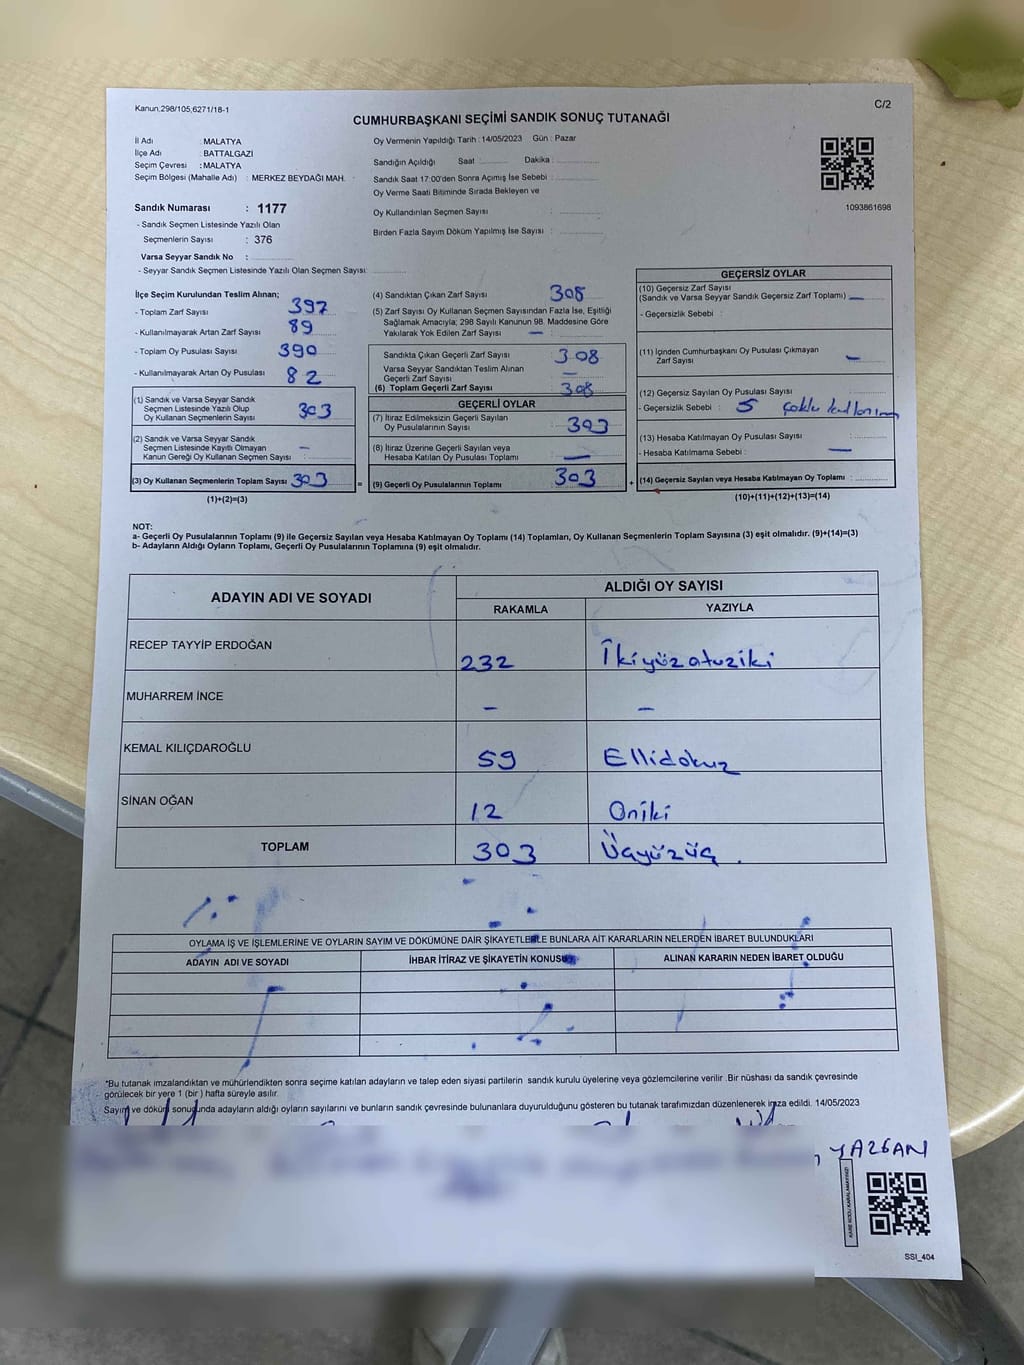 Kanun.298/105,6271/18-1
C/2
CUMHURBAŞKANI SEÇİMİ SANDIK SONUÇ TUTANAĞI
İl Adı : MALATYA
İlçe Adı : BATTALGAZİ
Seçim Çevresi : MALATYA
Seçim Bölgesi (Mahalle Adı) : MERKEZ BEYDAĞI MAH.
Oy Vermenin Yapıldığı Tarih : 14/05/2023 Gün : Pazar
Sandığın Açıldığı Saat ............ Dakika : ............
Sandık Saat 17:00'den Sonra Açımış İse Sebebi : ............
Oy Verme Saati Bitiminde Sırada Bekleyen ve
Oy Kullandırılan Seçmen Sayısı : ............
Birden Fazla Sayım Döküm Yapılmış İse Sayısı : ............
1093861698
Sandık Numarası : 1177
- Sandık Seçmen Listesinde Yazılı Olan
Seçmenlerin Sayısı : 376
Varsa Seyyar Sandık No : ............
- Seyyar Sandık Seçmen Listesinde Yazılı Olan Seçmen Sayısı ............
İlçe Seçim Kurulundan Teslim Alınan;
- Toplam Zarf Sayısı 397
- Kullanılmayarak Artan Zarf Sayısı 89
- Toplam Oy Pusulası Sayısı 390
- Kullanılmayarak Artan Oy Pusulası 82
(1) Sandık ve Varsa Seyyar Sandık
Seçmen Listesinde Yazılı Olup
Oy Kullanan Seçmenlerin Sayısı 303
(2) Sandık ve Varsa Seyyar Sandık
Seçmen Listesinde Kayıtlı Olmayan
Kanun Gereği Oy Kullanan Seçmen Sayısı : —
(3) Oy Kullanan Seçmenlerin Toplam Sayısı 303
(1)+(2)=(3)
(4) Sandıktan Çıkan Zarf Sayısı 308
(5) Zarf Sayısı Oy Kullanan Seçmen Sayısından Fazla İse, Eşitliği
Sağlamak Amacıyla; 298 Sayılı Kanunun 98. Maddesine Göre
Yakılarak Yok Edilen Zarf Sayısı —
Sandıkta Çıkan Geçerli Zarf Sayısı 308
Varsa Seyyar Sandıktan Teslim Alınan
Geçerli Zarf Sayısı —
(6) Toplam Geçerli Zarf Sayısı 308
GEÇERLİ OYLAR
(7) İtiraz Edilmeksizin Geçerli Sayılan
Oy Pusulalarının Sayısı 303
(8) İtiraz Üzerine Geçerli Sayılan veya
Hesaba Katılan Oy Pusulası Toplamı —
= (9) Geçerli Oy Pusulalarının Toplamı 303
GEÇERSİZ OYLAR
(10) Geçersiz Zarf Sayısı
(Sandık ve Varsa Seyyar Sandık Geçersiz Zarf Toplamı) —
- Geçersizlik Sebebi :
(11) İçinden Cumhurbaşkanı Oy Pusulası Çıkmayan
Zarf Sayısı —
(12) Geçersiz Sayılan Oy Pusulası Sayısı
- Geçersizlik Sebebi : 5 çoklu kullanım
(13) Hesaba Katılmayan Oy Pusulası Sayısı
- Hesaba Katılmama Sebebi : —
+ (14) Geçersiz Sayılan veya Hesaba Katılmayan Oy Toplamı : ............
(10)+(11)+(12)+(13)=(14)
NOT:
a- Geçerli Oy Pusulalarının Toplamı (9) ile Geçersiz Sayılan veya Hesaba Katılmayan Oy Toplamı (14) Toplamları, Oy Kullanan Seçmenlerin Toplam Sayısına (3) eşit olmalıdır. (9)+(14)=(3)
b- Adayların Aldığı Oyların Toplamı, Geçerli Oy Pusulalarının Toplamına (9) eşit olmalıdır.
ADAYIN ADI VE SOYADI
ALDIĞI OY SAYISI
RAKAMLA YAZIYLA
RECEP TAYYİP ERDOĞAN 232 İkiyüzotuziki
MUHARREM İNCE — —
KEMAL KILIÇDAROĞLU 59 Ellidokuz
SİNAN OĞAN 12 Oniki
TOPLAM 303 Üçyüzüç.
OYLAMA İŞ VE İŞLEMLERİNE VE OYLARIN SAYIM VE DÖKÜMÜNE DAİR ŞİKAYETLERLE BUNLARA AİT KARARLARIN NELERDEN İBARET BULUNDUKLARI
ADAYIN ADI VE SOYADI İHBAR İTİRAZ VE ŞİKAYETİN KONUSU ALINAN KARARIN NEDEN İBARET OLDUĞU
*Bu tutanak imzalandıktan ve mühürlendikten sonra seçime katılan adayların ve talep eden siyasi partilerin sandık kurulu üyelerine veya gözlemcilerine verilir .Bir nüshası da sandık çevresinde
görülecek bir yere 1 (bir ) hafta süreyle asılır.
Sayım ve döküm sonucunda adayların aldığı oyların sayılarını ve bunların sandık çevresinde bulunanlara duyurulduğunu gösteren bu tutanak tarafımızdan düzenlenerek imza edildi. 14/05/2023
YAZGAN
KARE KODU KARALAMAYINIZ!
SSİ_404